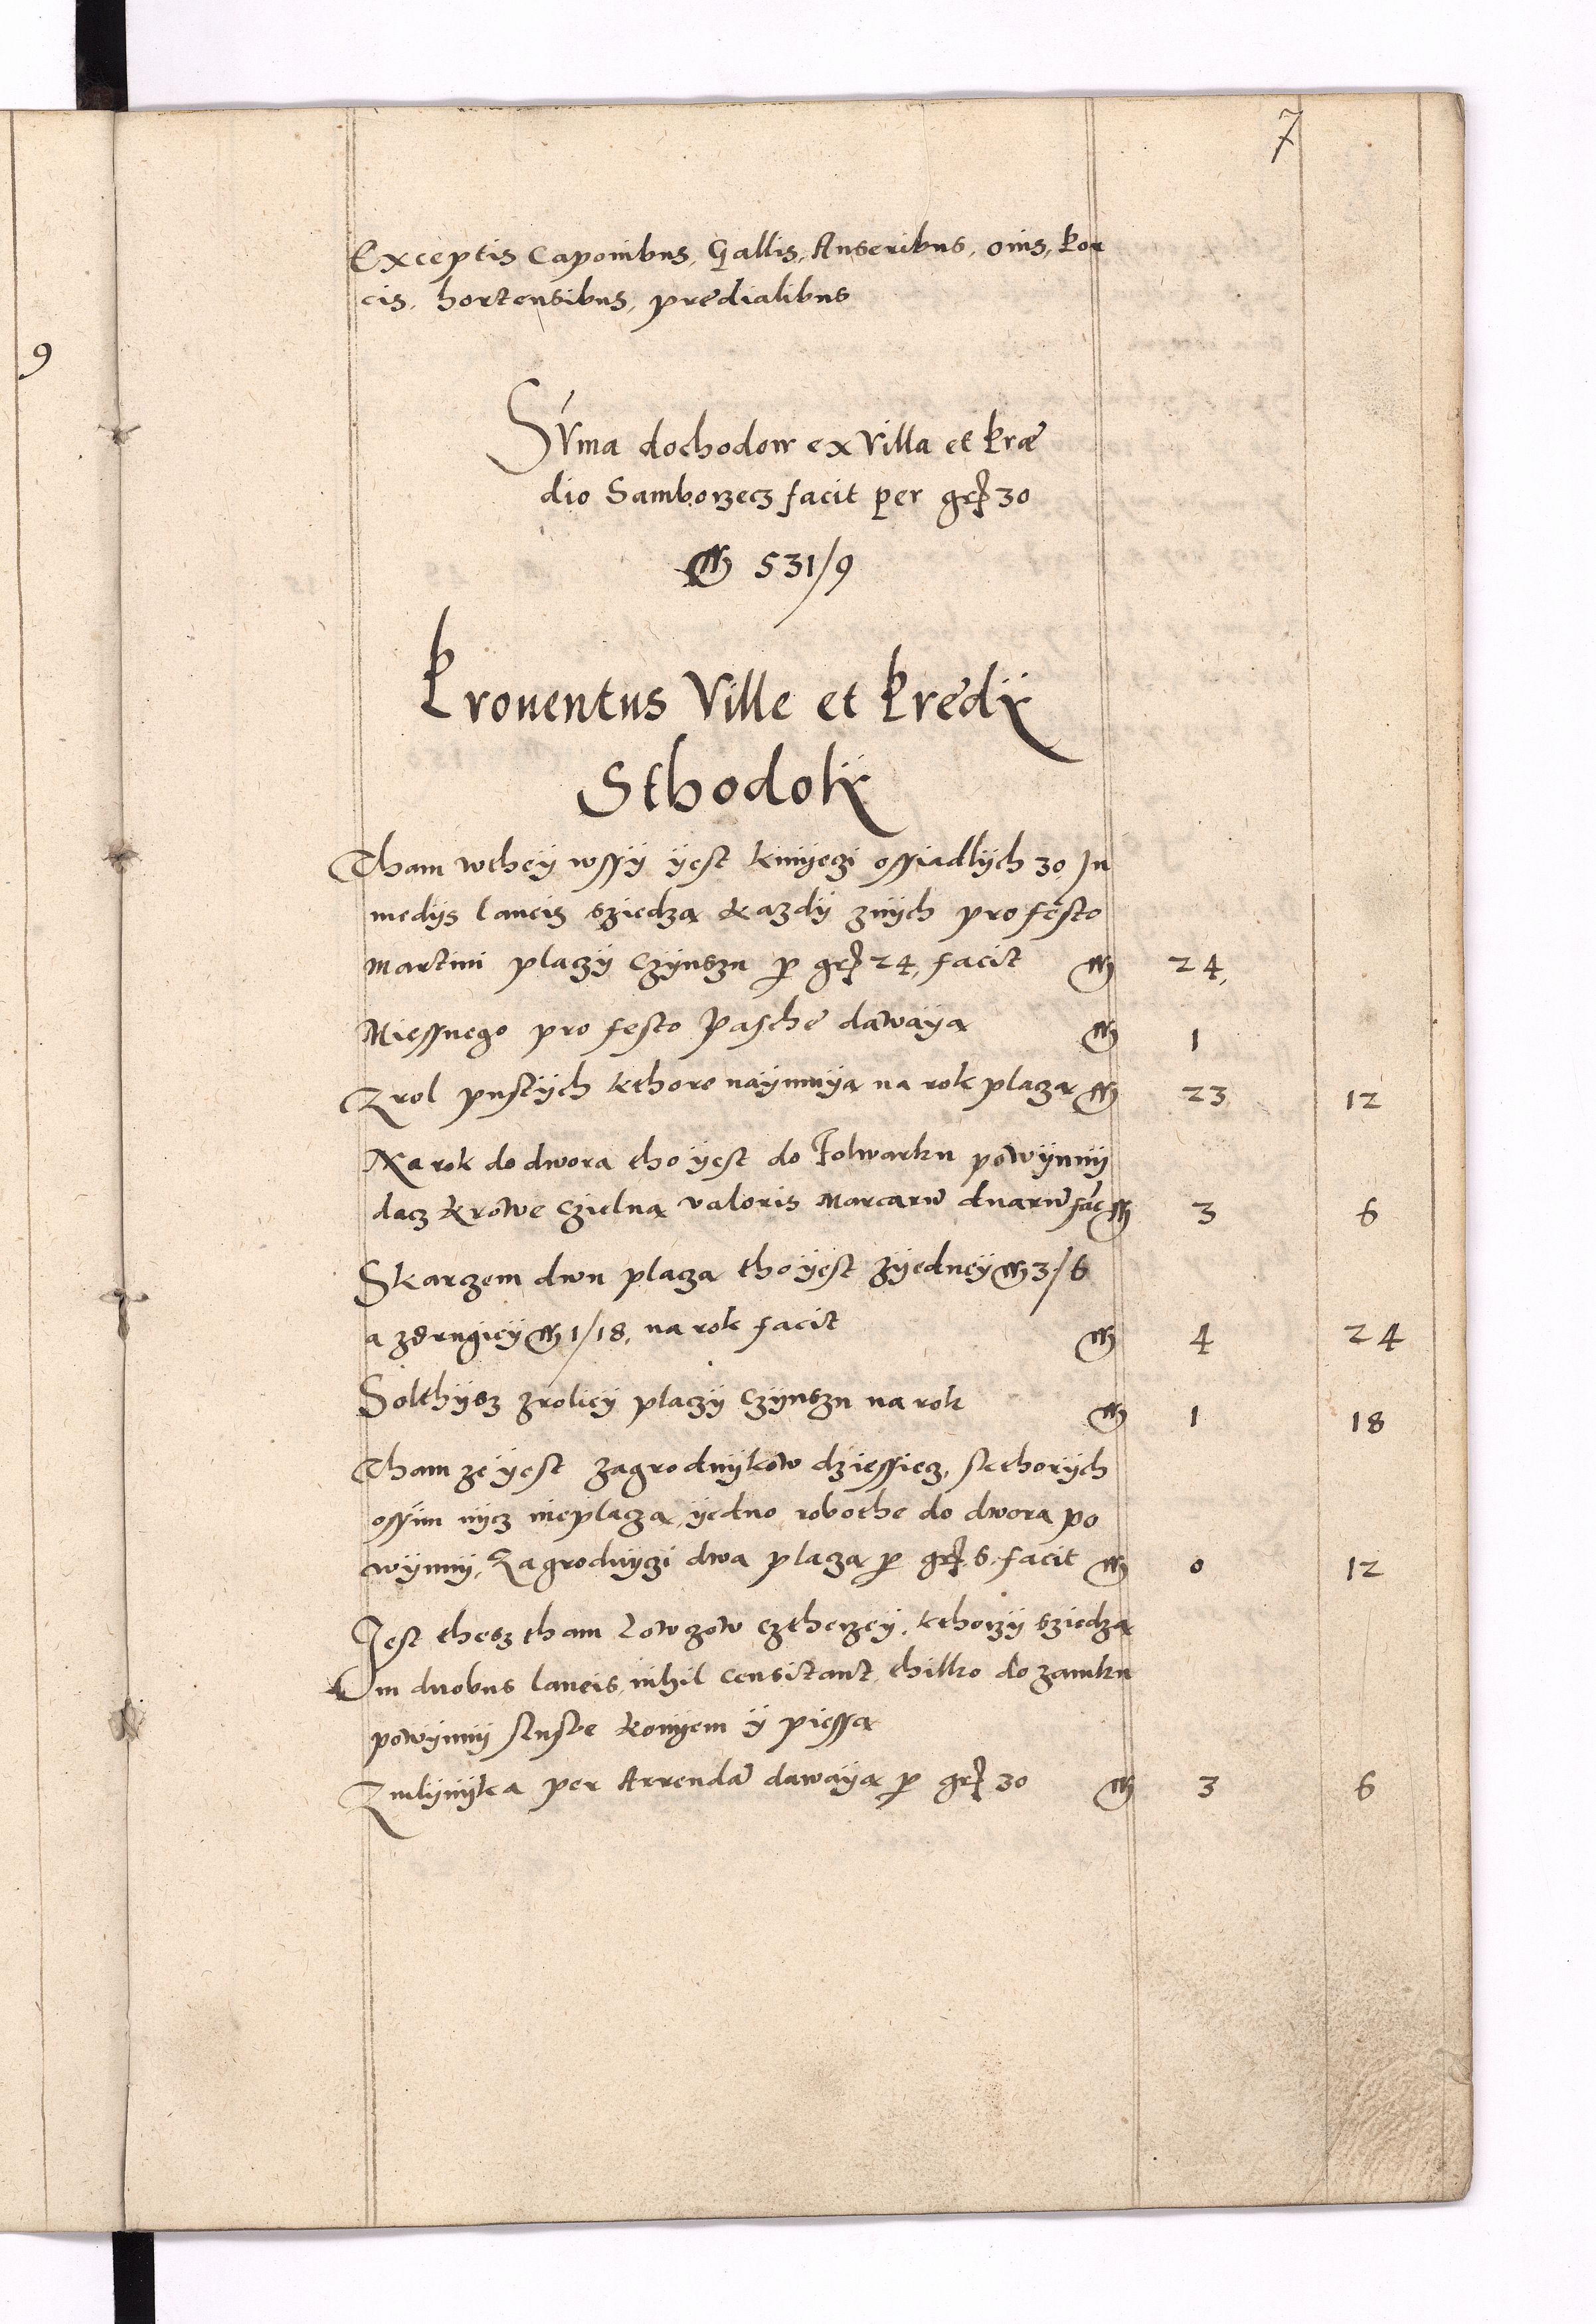 7
9
Exceptis Caponibus, Gallis, Anseribus, ouis, Por
cis, hortensibus, predialibus
Sum̄a dochodow ex Villa et Præ
dio Samborzecz facit per grß 30
ɱ 531/9
Prouentus Ville et Predij
Sthodolÿ
Tham wtheÿ wssÿ ÿest kmÿeczi ossiadlÿch 30 In
medijs laneis sziedzą kazdÿ znÿch pro festo
Martini placzÿ Czÿnszu ꝑ grß 24, facit ɱ 24,
Miessnego pro festo Paschē dawaÿą ɱ 1
Z rol pustÿch kthore naÿmuÿą na rok placzą ɱ 23 12
Na rok do dwora tho ÿest do Folwarku powÿnnÿ
dacz krowe Czielną valoris Marcarū duarū fac̄ ɱ 3 6
S karczem dwu placzą tho ÿest zÿedneÿ ɱ 3/6
a zdrugieÿ ɱ 1/18, na rok facit ɱ 4 24
Solthÿsz zrolieÿ placzÿ Czÿnszu na rok ɱ 1 18
Tham ze ÿest zagrodnÿkow dziessiecz, skthorÿch
ossḿ nÿcz nieplaczą, ÿedno robothe do dwora po
wÿnnÿ, Zagrodnÿczi dwa placzą ꝑ grß 6 facit ɱ 0 12
Jest thesz tham Lowczow cztherzeÿ, kthorzÿ sziedzą
in duobus laneis, nihil censitant, thilko do zamku
powÿnnÿ sluzbe konÿem ÿ piessą
Zmlÿnÿka per Arrendā dawaÿą ꝑ grß 30 ɱ 3 6